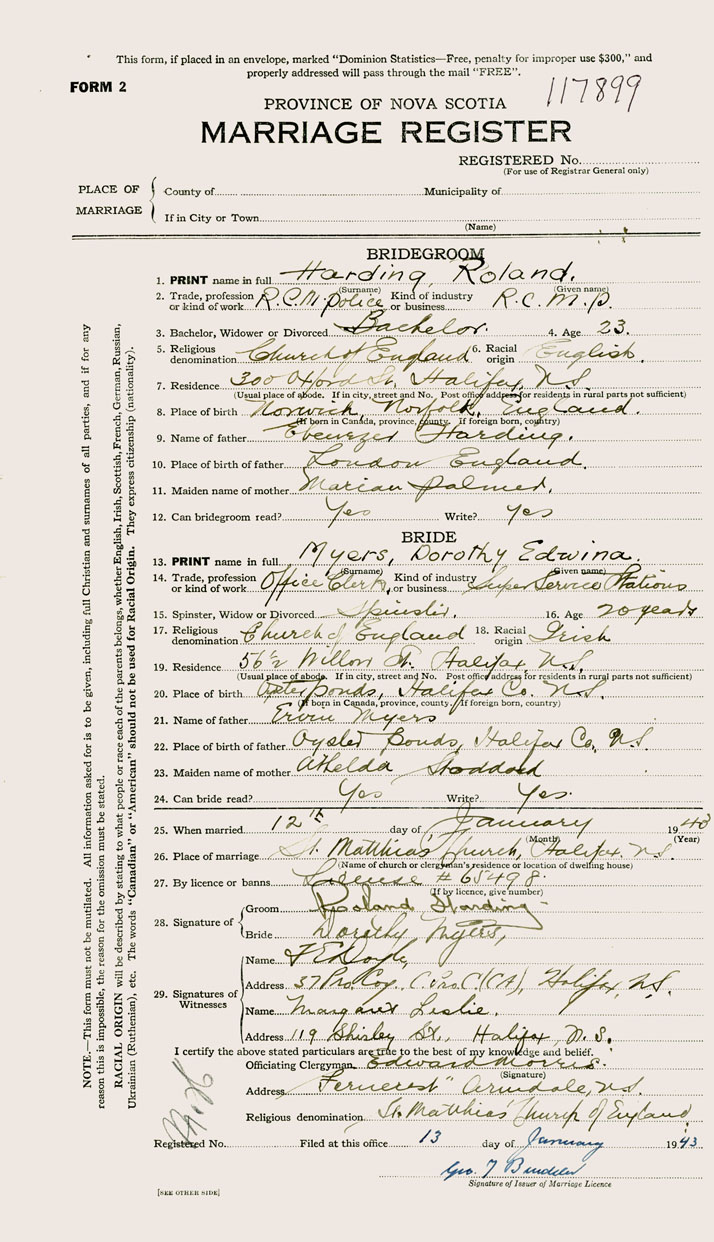 This form, if placed in an envelope, marked "Dominion Statistics—Free, penalty for improper use $300," and
properly addressed will pass through the mail "FREE".
FORM 2
117899
PROVINCE OF NOVA SCOTIA
MARRIAGE REGISTER
REGISTERED No.
(For use of Registrar General only)
PLACE OF MARRIAGE
County of Municipality of
If in City or Town
(Name)
BRIDEGROOM
1. PRINT name in full Harding, Roland.
(Surname) (Given name)
2. Trade, profession or kind of work R.C.M. Police Kind of industry or business R.C.M.P.
3. Bachelor, Widower or Divorced Bachelor. 4. Age 23.
5. Religious denomination Church of England 6. Racial origin English.
7. Residence 300 Oxford St. Halifax, N.S.
(Usual place of abode. If in city, street and No. Post office address for residents in rural parts not sufficient)
8. Place of birth Norwich, Norfolk, England.
(If born in Canada, province, county. If foreign born, country)
9. Name of father Ebenezer Harding.
10. Place of birth of father London England.
11. Maiden name of mother Marian Palmer.
12. Can bridegroom read? Yes Write? Yes
BRIDE
13. PRINT name in full Myers, Dorothy Edwina.
(Surname) (Given name)
14. Trade, profession or kind of work Office Clerk, Kind of industry or business Super Service Stations
15. Spinster, Widow or Divorced Spinster. 16. Age 20 years
17. Religious denomination Church of England 18. Racial origin Irish
19. Residence 56½ Willow St. Halifax, N.S.
(Usual place of abode. If in city, street and No. Post office address for residents in rural parts not sufficient)
20. Place of birth Oyster Ponds, Halifax Co. N.S.
(If born in Canada, province, county. If foreign born, country)
21. Name of father Ervin Myers
22. Place of birth of father Oyster Ponds, Halifax Co, N.S.
23. Maiden name of mother Athelda Stoddard
24. Can bride read? Yes Write? Yes.
25. When married 12th day of January 1943
(Month) (Year)
26. Place of marriage St. Matthias' Church, Halifax. N.S.
(Name of church or clergyman's residence or location of dwelling house)
27. By licence or banns License # 65498.
(If by licence, give number)
28. Signature of
Groom Roland Harding
Bride Dorothy Myers,
29. Signatures of Witnesses
Name
Address Halifax, N.S.
Name Margaret Leslie.
Address 119 Shirley St., Halifax, N.S.
I certify the above stated particulars are true to the best of my knowledge and belief.
Officiating Clergyman Edward Morris.
(Signature)
Address "Ferncrest" Armdale, N.S.
Religious denomination St. Matthias' Church of England
Registered No. Filed at this office 13 day of January 1943
Signature of Issuer of Marriage Licence
[SEE OTHER SIDE]
NOTE.—This form must not be mutilated. All information asked for is to be given, including full Christian and surnames of all parties, and if for any
reason this is impossible, the reason for the omission must be stated.
RACIAL ORIGIN will be described by stating to what people or race each of the parents belongs, whether English, Irish, Scottish, French, German, Russian,
Ukrainian (Ruthenian), etc. The words "Canadian" or "American" should not be used for Racial Origin. They express citizenship (nationality).